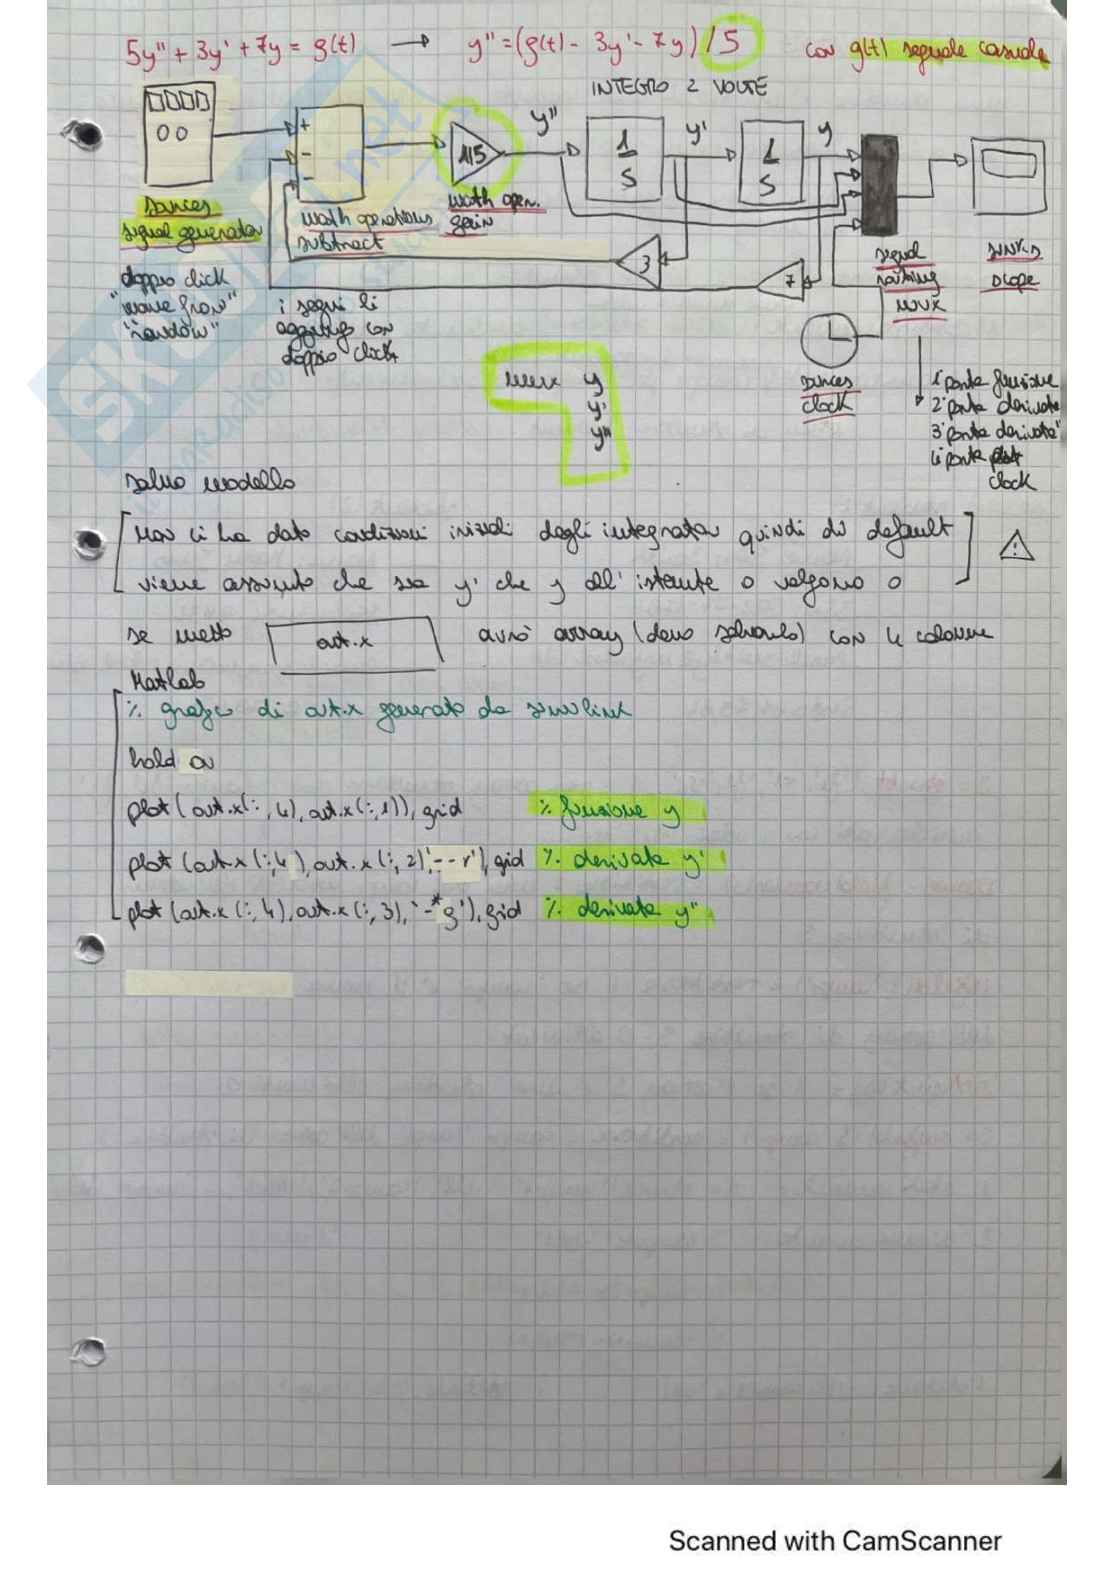 5y" + 3y' + 7y = g(t) → y" = (g(t) - 3y' - 7y) / 5 con g(t) segnale casuale
INTEGRO 2 VOLTE
+
-
-
1/5
y"
1/S
y'
1/S
y
sources
signal generator
math operations
subtract
math oper.
gain
3
7
signal
routing
mux
sinks
scope
doppio click
"wave form"
"random"
i segni li
aggiungo con
doppio click
sources
clock
mux y
y'
y"
1° porta funzione
2° porta derivata
3° porta derivata"
4 porta plot
clock
salvo modello
Non ci ha dato condizioni iniziali degli integrator quindi di default
viene assunto che sia y' che y all'istante 0 valgono 0
se metto out.x avrò array (devo salvarlo) con 4 colonne
Matlab
% grafico di out.x generato da simulink
hold on
plot(out.x(:,4), out.x(:,1)), grid % funzione y
plot(out.x(:,4), out.x(:,2), '--r'), grid % derivata y'
plot(out.x(:,4), out.x(:,3), '-*g'), grid % derivata y"
Scanned with CamScanner